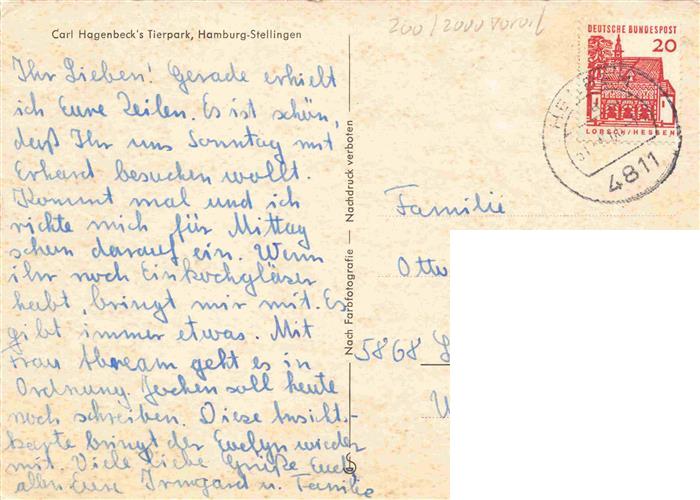 Carl Hagenbeck's Tierpark, Hamburg-Stellingen
200/2000
Ihr Lieben! Gerade erhielt
ich Eure Zeilen. Es ist schön,
daß Ihr uns Sonntag mit
Erhard besuchen wollt.
Kommt mal und ich
richte mich für Mittag
schon darauf ein. Wenn
ihr noch Einkochgläser
habt, bringt mir mit. Es
gibt immer etwas. Mit
Frau geht es in
Ordnung. Jochen soll heute
noch schreiben. Diese Ansichts-
karte bringt der Evelyn wieder
mit. Viele liebe Grüße Euch
allen Eure Irmgard u. Familie
Nach Farbfotografie — Nachdruck verboten
DEUTSCHE BUNDESPOST
20
LORSCH/HESSEN
4811
Familie
Otto
5868